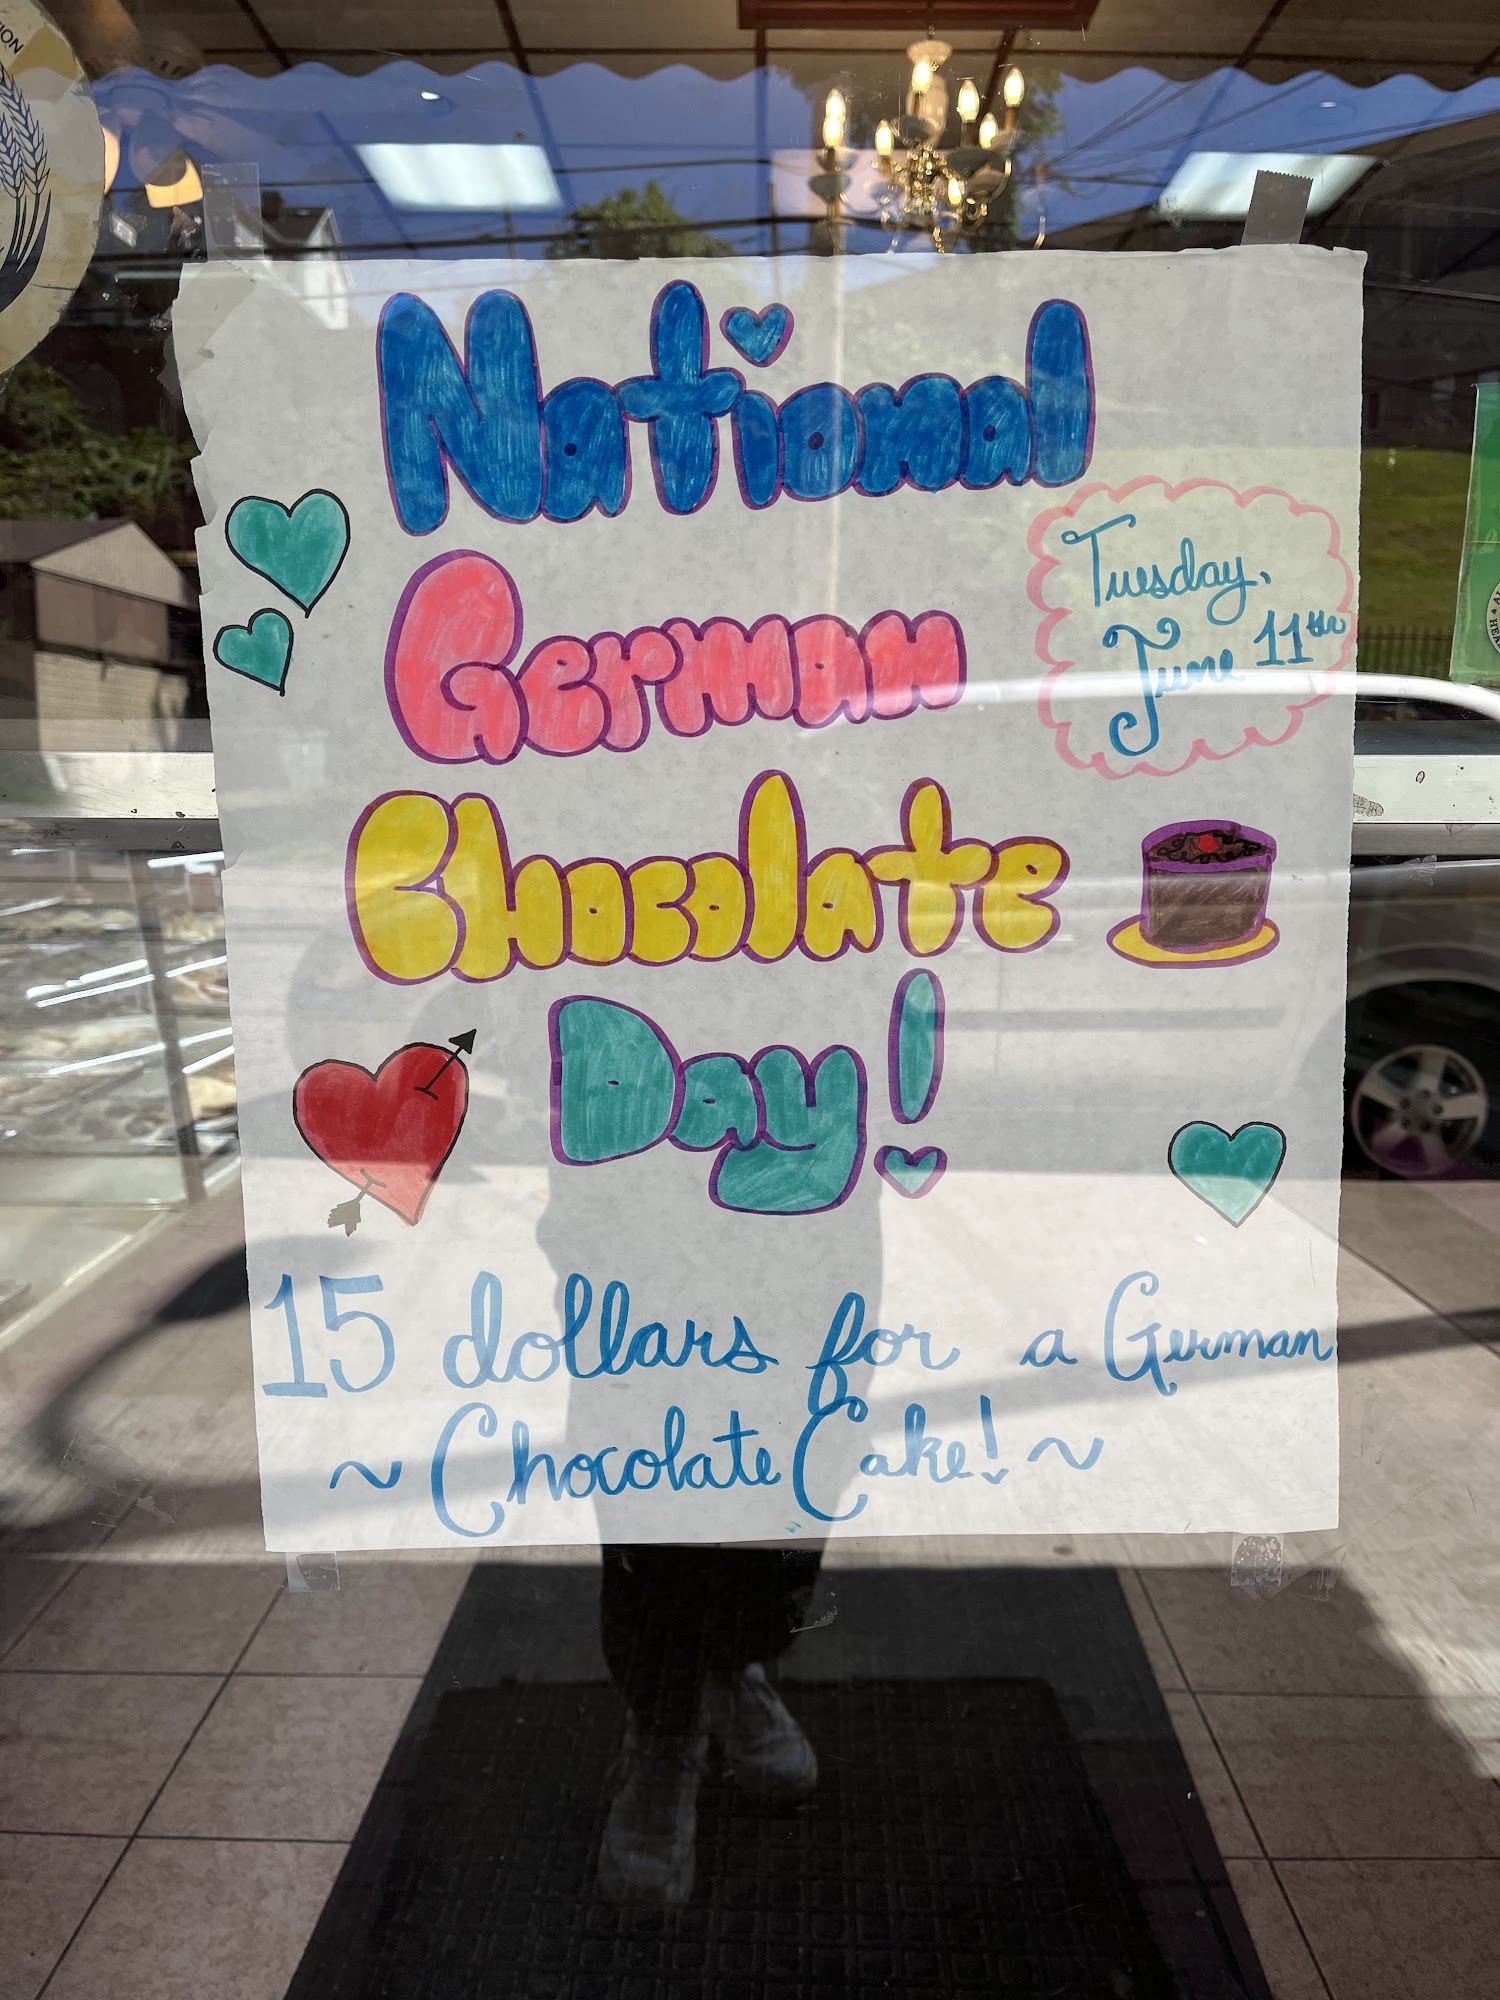 National
German
Tuesday,
June 11th
Chocolate
Day!
15 dollars for a German
~ Chocolate Cake! ~